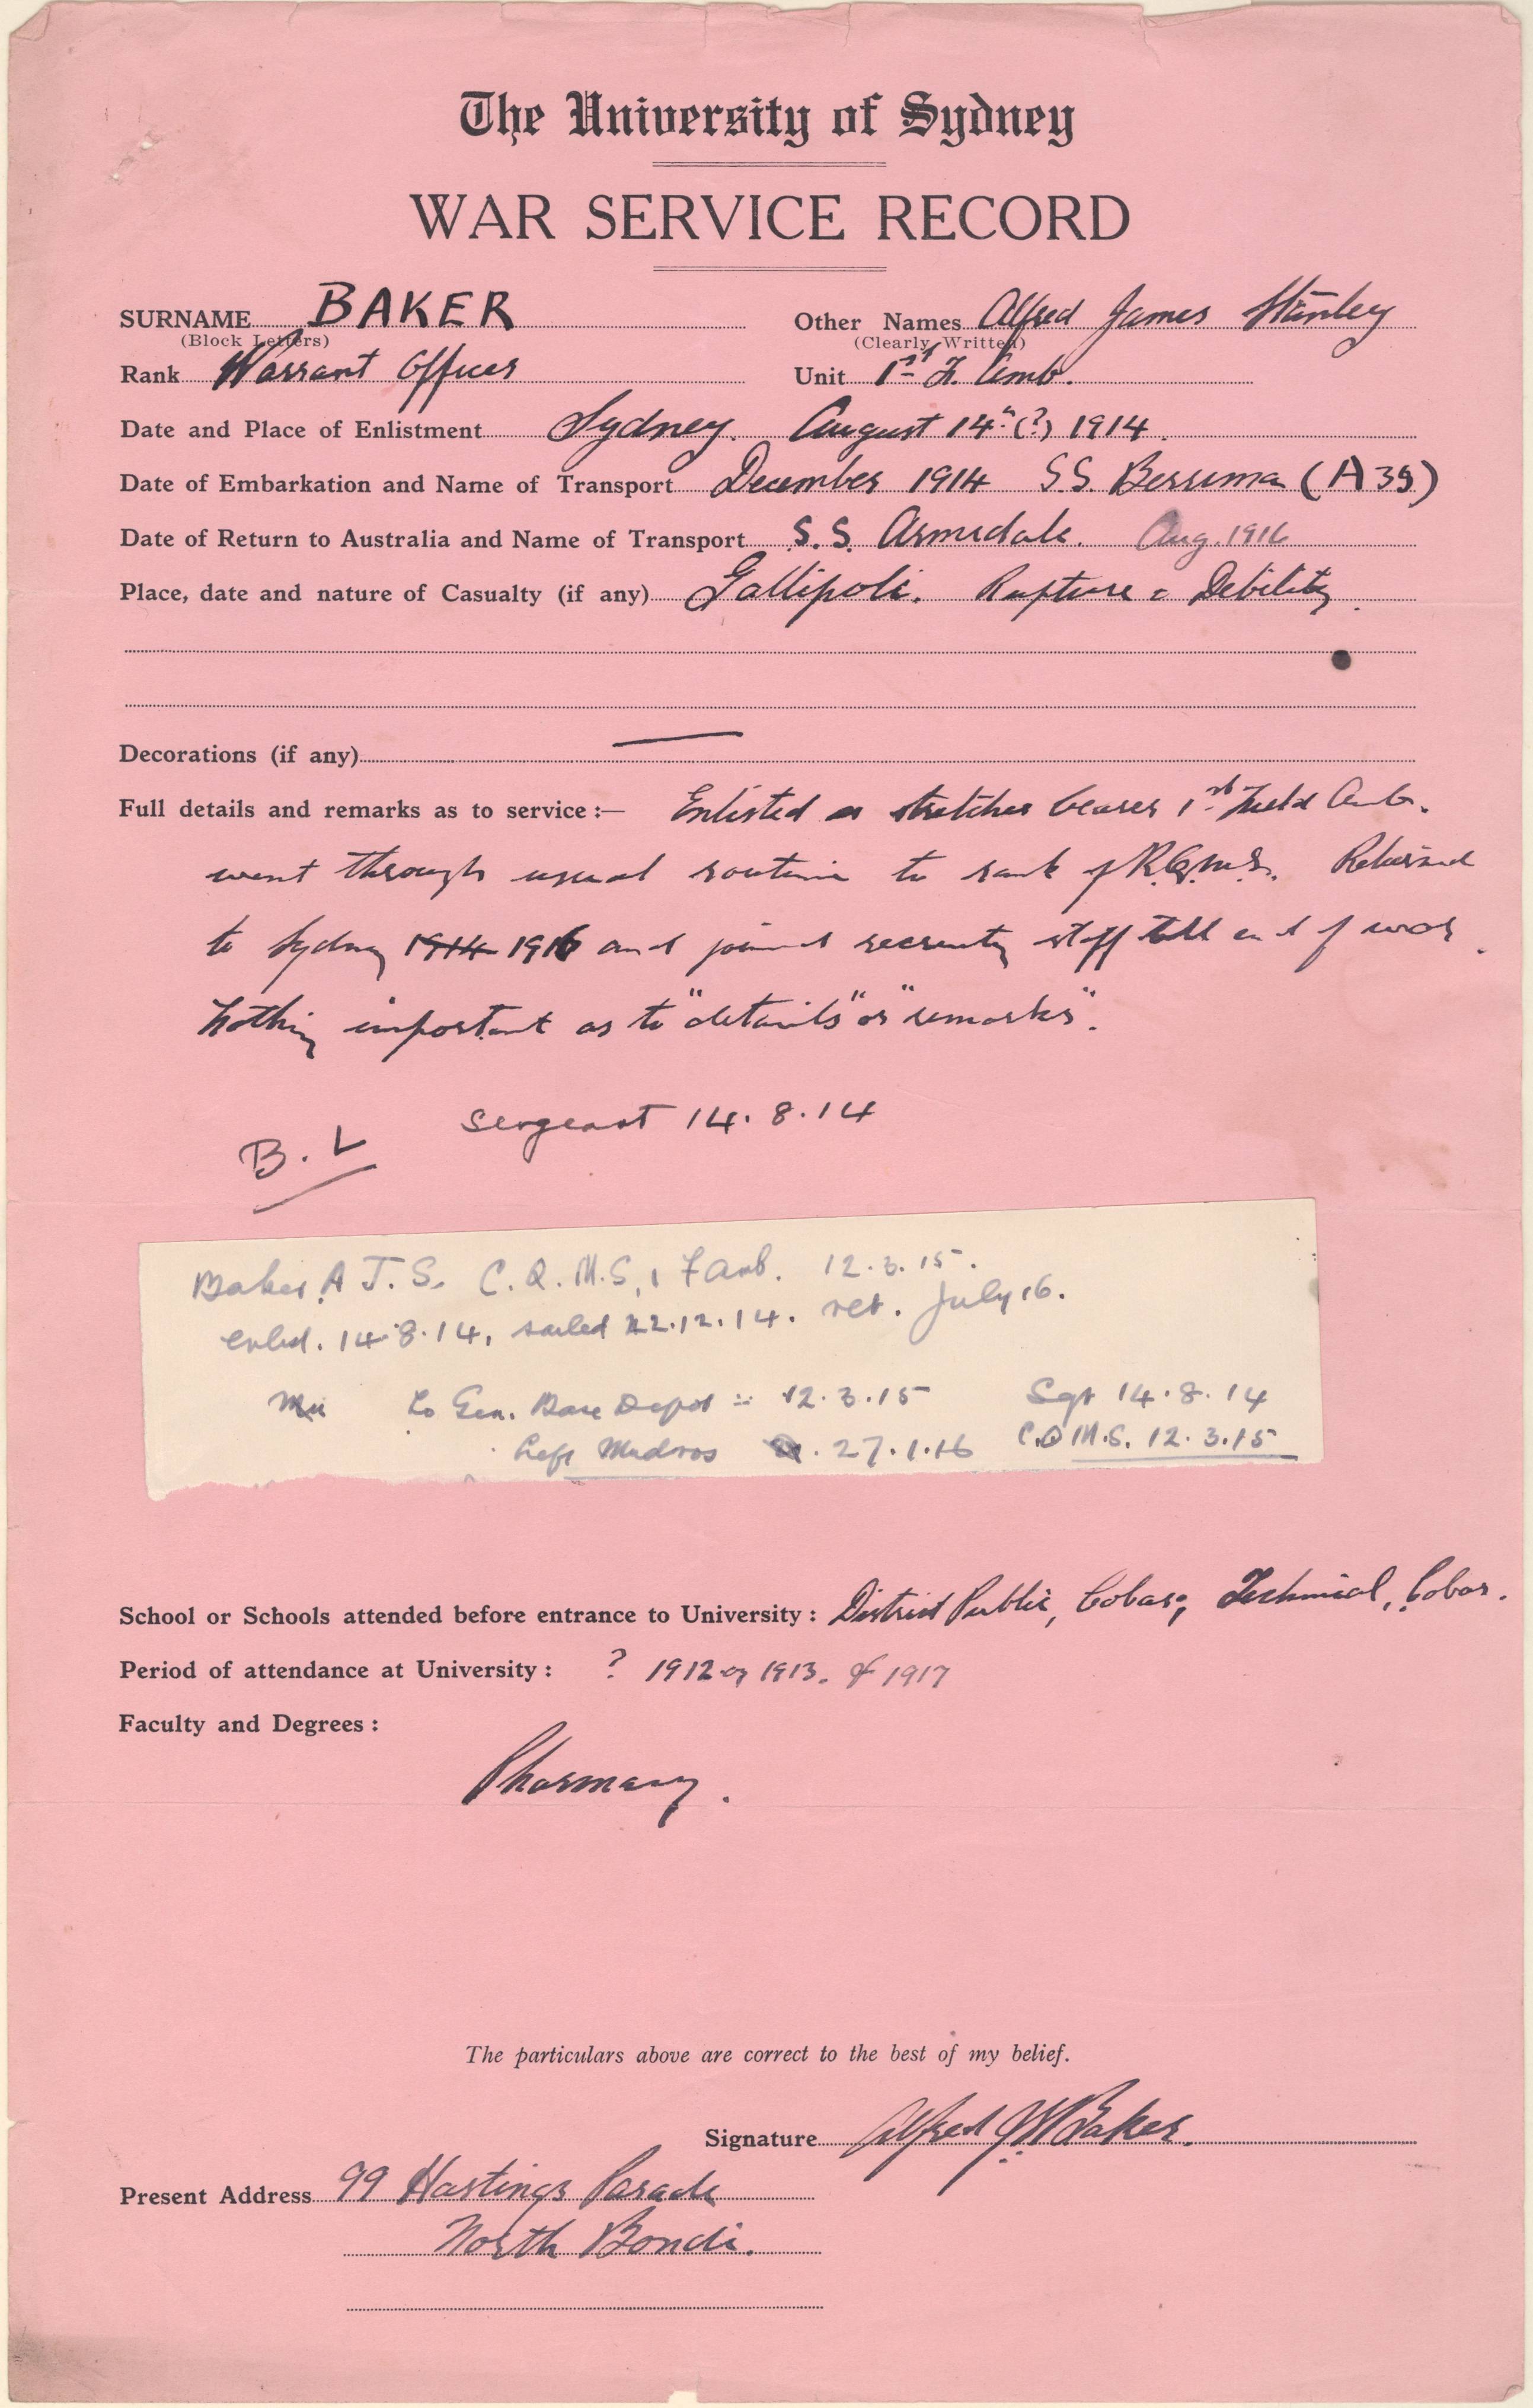 The University of Sydney
WAR SERVICE RECORD
SURNAME BAKER Other Names Alfred James Stanley
(Block Letters) (Clearly Written)
Rank Warrant Officer Unit 1st F. Amb.
Date and Place of Enlistment Sydney. August 14th (?) 1914.
Date of Embarkation and Name of Transport December 1914 S.S. Berrima (A 35)
Date of Return to Australia and Name of Transport S.S. Armidale. Aug. 1916
Place, date and nature of Casualty (if any) Gallipoli. Rupture & Debility.
Decorations (if any) —
Full details and remarks as to service :— Enlisted as stretcher bearer 1st Field Amb.
went through usual routine to rank of R.Q.M.S. Returned
to Sydney 1914 1916 and joined recruiting staff till end of war.
Nothing important as to "details" or "remarks".
Sergeant 14.8.14
B. L
Baker A J. S. C. Q. M. S, 1 F Amb. 12.3.15.
enltd. 14.8.14, sailed 22.12.14. ret. July 16.
To Gen. Base Depot :- 12.3.15 Sgt 14.8.14
Left Mudros 27.1.16 C.Q M.S. 12.3.15
School or Schools attended before entrance to University : District Public, Cobar; Technical, Cobar.
Period of attendance at University : ? 1912 or 1913. & 1917
Faculty and Degrees :
Pharmacy.
The particulars above are correct to the best of my belief.
Signature Alfred J S Baker.
Present Address 99 Hastings Parade
North Bondi.